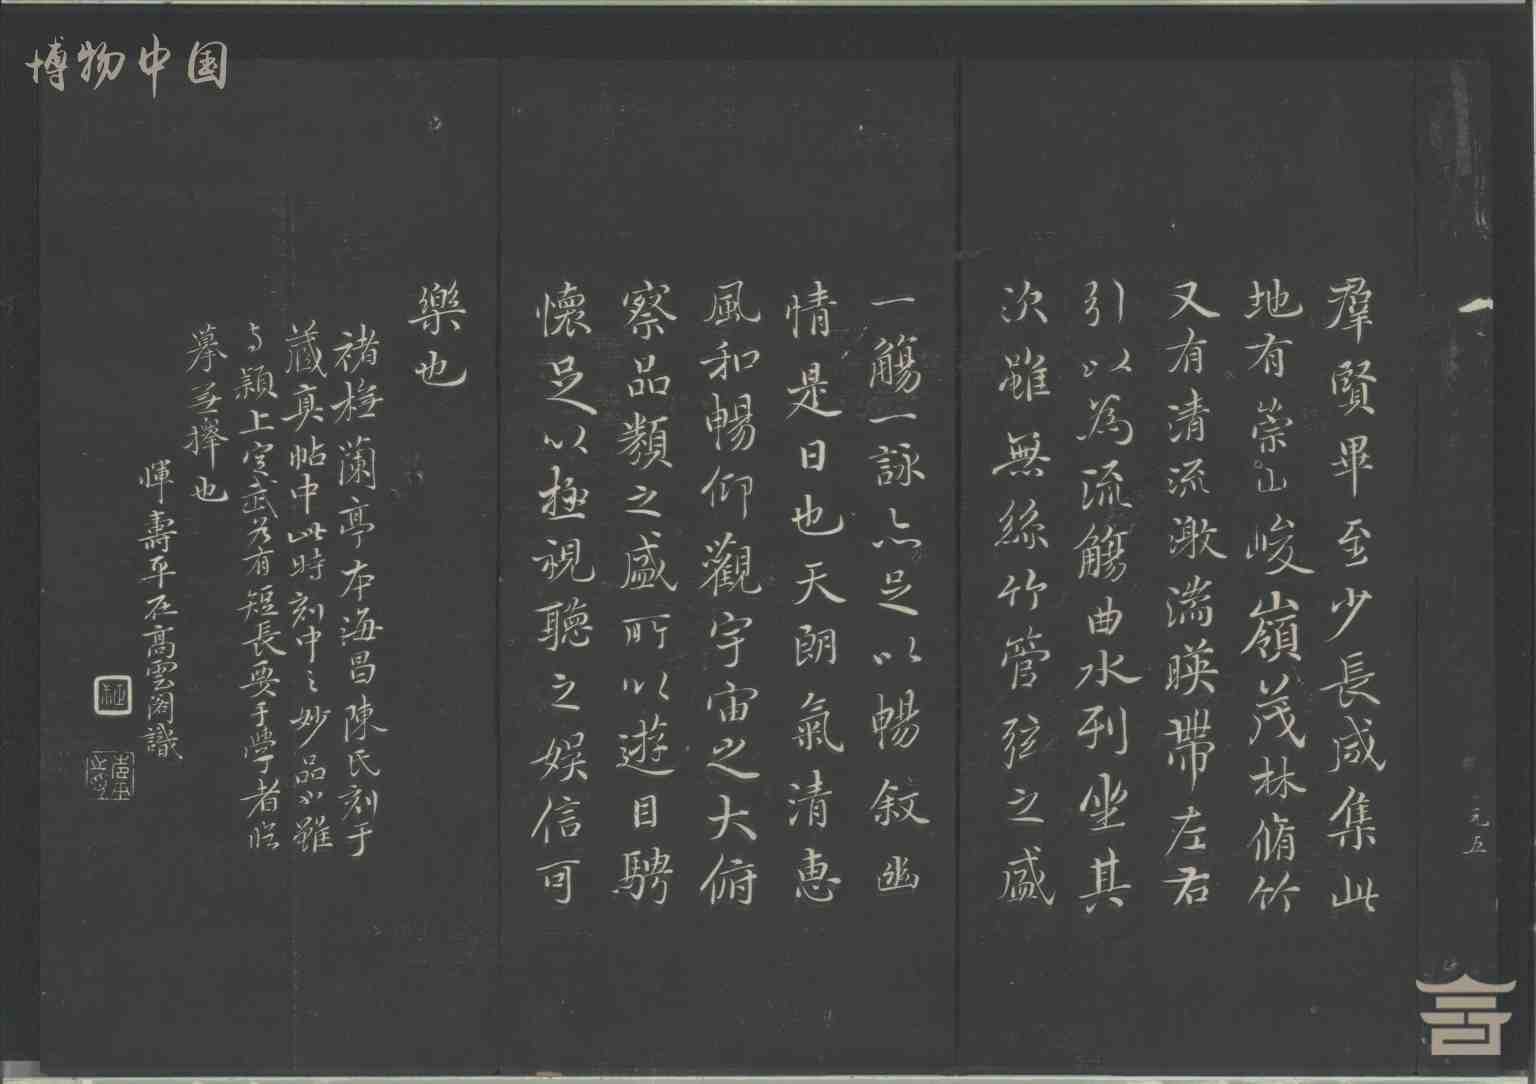 博物中国
羣賢畢至少長咸集此
地有崇山峻嶺茂林脩竹
又有清流激湍暎帶左右
引以為流觴曲水列坐其
次雖無絲竹管弦之盛
一觴一詠亦足以暢敘幽
情是日也天朗氣清惠
風和暢仰觀宇宙之大俯
察品類之盛所以遊目騁
懷足以極視聽之娛信可
樂也
褚橅蘭亭本海昌陳氏刻于
藏真帖中此時刻中之妙品也雖
与穎上定武父有短長要于學者臨
摹並擇也
惲壽平在高雲閣識
元五